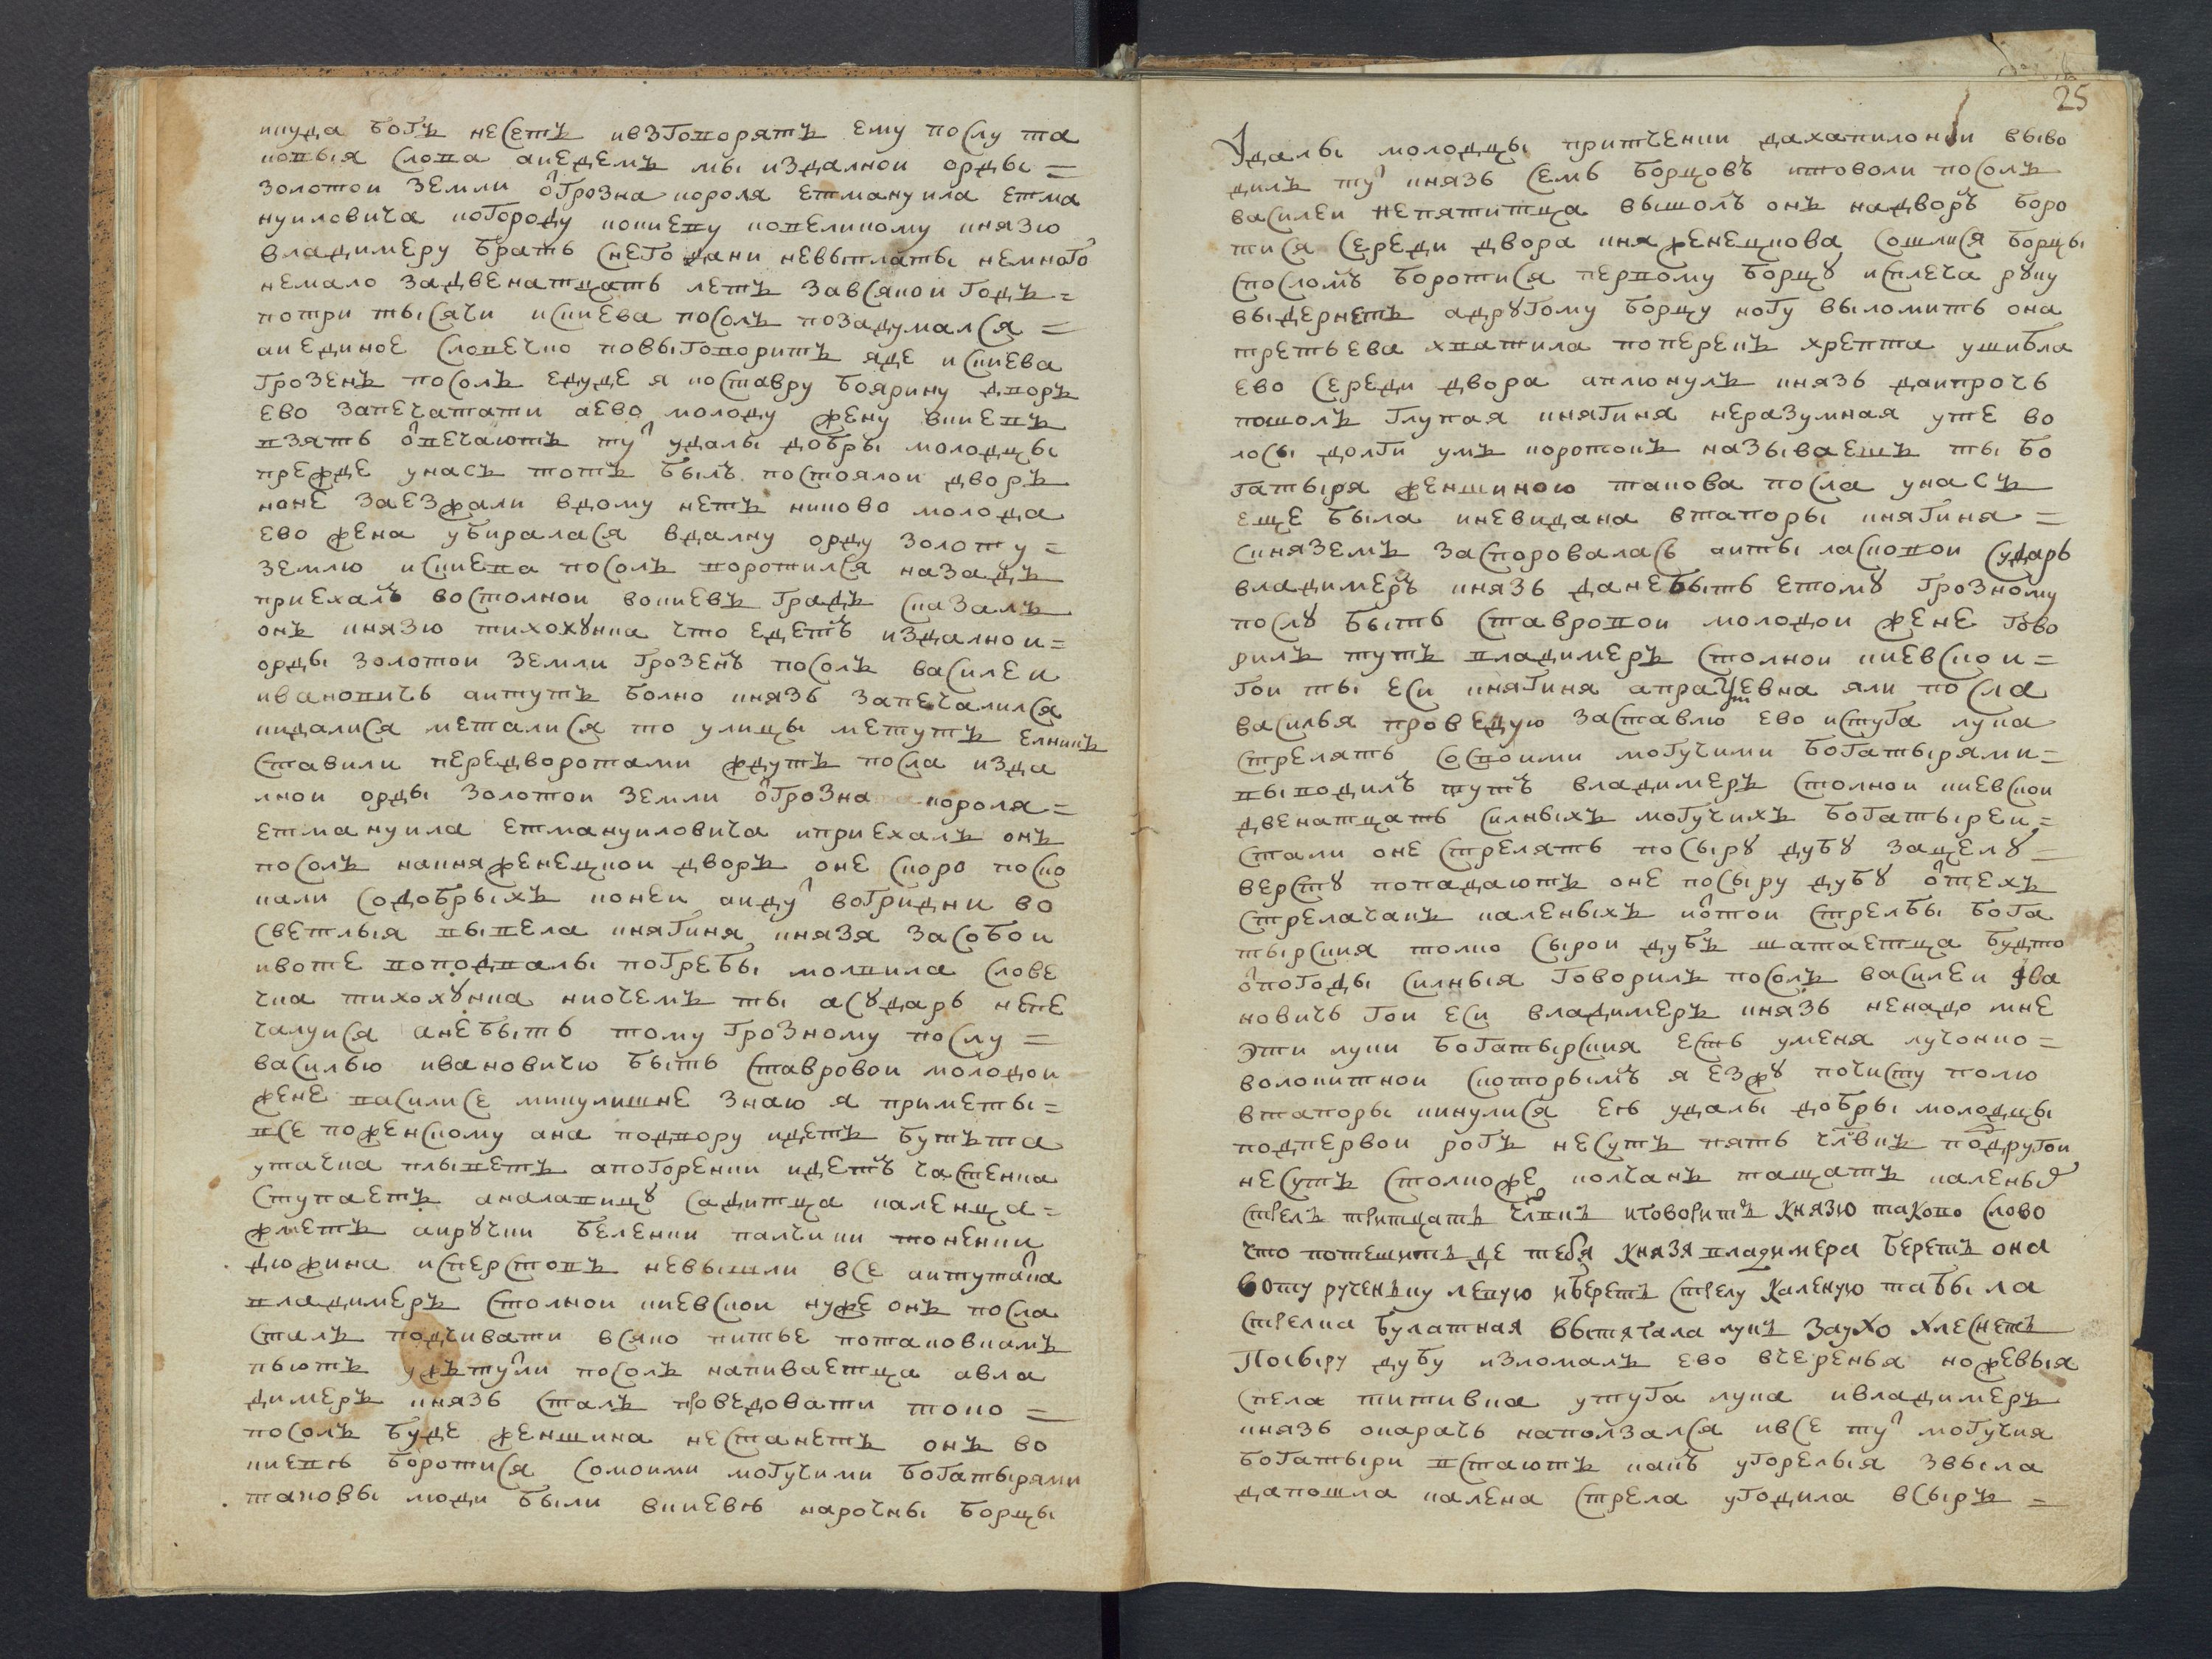 куда богъ несетъ ивзговорятъ ему послу та
ковыя слова аиедемъ мы издалнои орды =
золотои земли о грозна короля етмануила етма
нуиловича когороду кокиеву ковеликому князю
владимеру брать снего дани невыплаты немного
немало задвенатцать летъ завсякои годъ =
потри тысячи искиева посолъ позадумался =
аиединое словечко повыговоритъ яде искиева
грозенъ посолъ едуде я коставру боярину дворъ
ево запечатати аево молоду жену вкиевъ
взять ѿвечаютъ ту удалы добры молодцы
прежде унасъ тотъ былъ постоялои дворъ
ноне заезжали вдому нетъ никово молода
ево жена убиралася вдалну орду золоту =
землю искиева посолъ воротился назадъ
приехалъ востолнои вокиевъ градъ сказалъ
онъ князю тихохунка что едетъ издалнои =
орды золотои земли грозенъ посолъ василеи
ивановичь аитутъ болно князь запечалился
кидалися металися то улицы метутъ елникъ
ставили передворотами ждутъ посла изда
лнои орды золотои земли ѿгрозна короля =
етмануила етмануиловича иприехалъ онъ
посолъ накняженецкои дворъ оне скоро поско
кали содобрыхъ конеи аиду вогридни во
светлыя вывела княгиня князя засобои
ивоте воподвалы погребы молвила слове
чка тихохунка ниочемъ ты асударь непе
чалуися анебыть тому грозному послу =
василью ивановичю быть ставровои молодои
жене василисе микулишне знаю я приметы =
все поженскому ана подвору идетъ будъта
уточка плыветъ апогоренки идетъ частенка
ступаетъ аналавицу садитца каленца =
жметъ аиручки беленки палчики тоненки
дюжина исперстовъ невышли все аитутака
владимеръ столнои киевскои нуже онъ посла
сталъ подчивати всяко питье потаковкамъ
пьютъ удъ тули посолъ напиваетца авла
димеръ князь сталъ проведовати токо =
посолъ буде женшина нестанетъ онъ во
киевѣ боротися сомоими могучими богатырями
таковы люди были вкиевѣ нарочны борцы
25
Удалы молодцы притченки дахапилонки выво
дилъ ту князь семь борцовъ итоволи посолъ
василеи непятитца вышолъ онъ надворъ боро
тися середи двора княженецкова сошлися борцы
спосломъ боротися первому борцу исплеча руку
выдернетъ адругому борцу ногу выломить она
третьева хватила поперекъ хрепта ушибла
ево середи двора аплюнулъ князь даипрочь
пошолъ глупая княгиня неразумная уте во
лосы долги умъ коротокъ называешъ ты бо
гатыря женшиною такова посла унасъ
еще была иневидана втапоры княгиня =
скняземъ заспоровалась аиты ласковои сударь
владимеръ князь данебыть етому грозному
послу быть ставровои молодои жене гово
рилъ тутъ владимеръ столнои киевскои =
гои ты еси княгиня апраѯевна яли посла
василья проведую заставлю ево истуга лука
стрелять сосвоими могучими богатырями =
выводилъ тутъ владимеръ столнои киевскои
двенатцать силныхъ могучихъ богатыреи =
стали оне стрелять посыру дубу зацелу =
версту попадаютъ оне посыру дубу ѿтехъ
стрелачакъ каленыхъ иѿтои стрелбы бога
тырския толко сырои дубъ шатаетца будто
ѿпогоды силныя говорилъ посолъ василеи ива
новичь гои еси владимеръ князь ненадо мне
эти луки богатырския есть уменя лучонко =
волокитнои скоторымъ я езжу почисту полю
втапоры кинулися ея удалы добры молодцы
подпервои рогъ несутъ пять члвкъ подругои
несутъ столкоже колчанъ тащатъ каленыхъ
стрелъ тритцать члвкъ иговоритъ князю таково слово
что потешитъ де тебя князя владимера беретъ она
воту рученъку левую иберетъ стрелу каленую табыла
стрелка булатная вытягала лукъ заухо хлеснетъ
Посыру дубу изломалъ ево вчеренья ножевыя
спела титивка утуга лука ивладимеръ
князь окарачь наползался ивсе ту могучия
богатыри встаютъ какъ угорелыя звыла
дапошла калена стрела угодила всыръ =